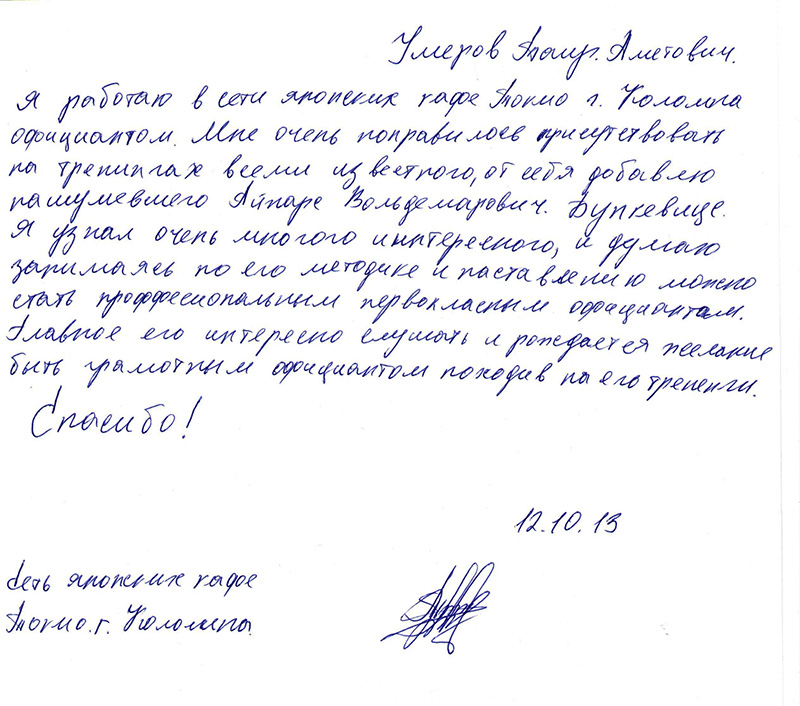 Умеров Таир. Аметович.
Я работаю в сети японских кафе Токио г. Коломна
официантом. Мне очень понравилось присутствовать
на тренингах всеми известного, от себя добавлю
нашумевшего Айнаре Вольдемарович. Бункевице.
Я узнал очень многого интересного, и думаю
занимаясь по его методике и наставлению можно
стать проффесиональным первокласным официантам.
Главное его интересно слушать и рождается желание
быть грамотным официантом походив на его тренинги.
Спасибо!
12.10.13
Сеть японских кафе
Токио. г. Коломна.